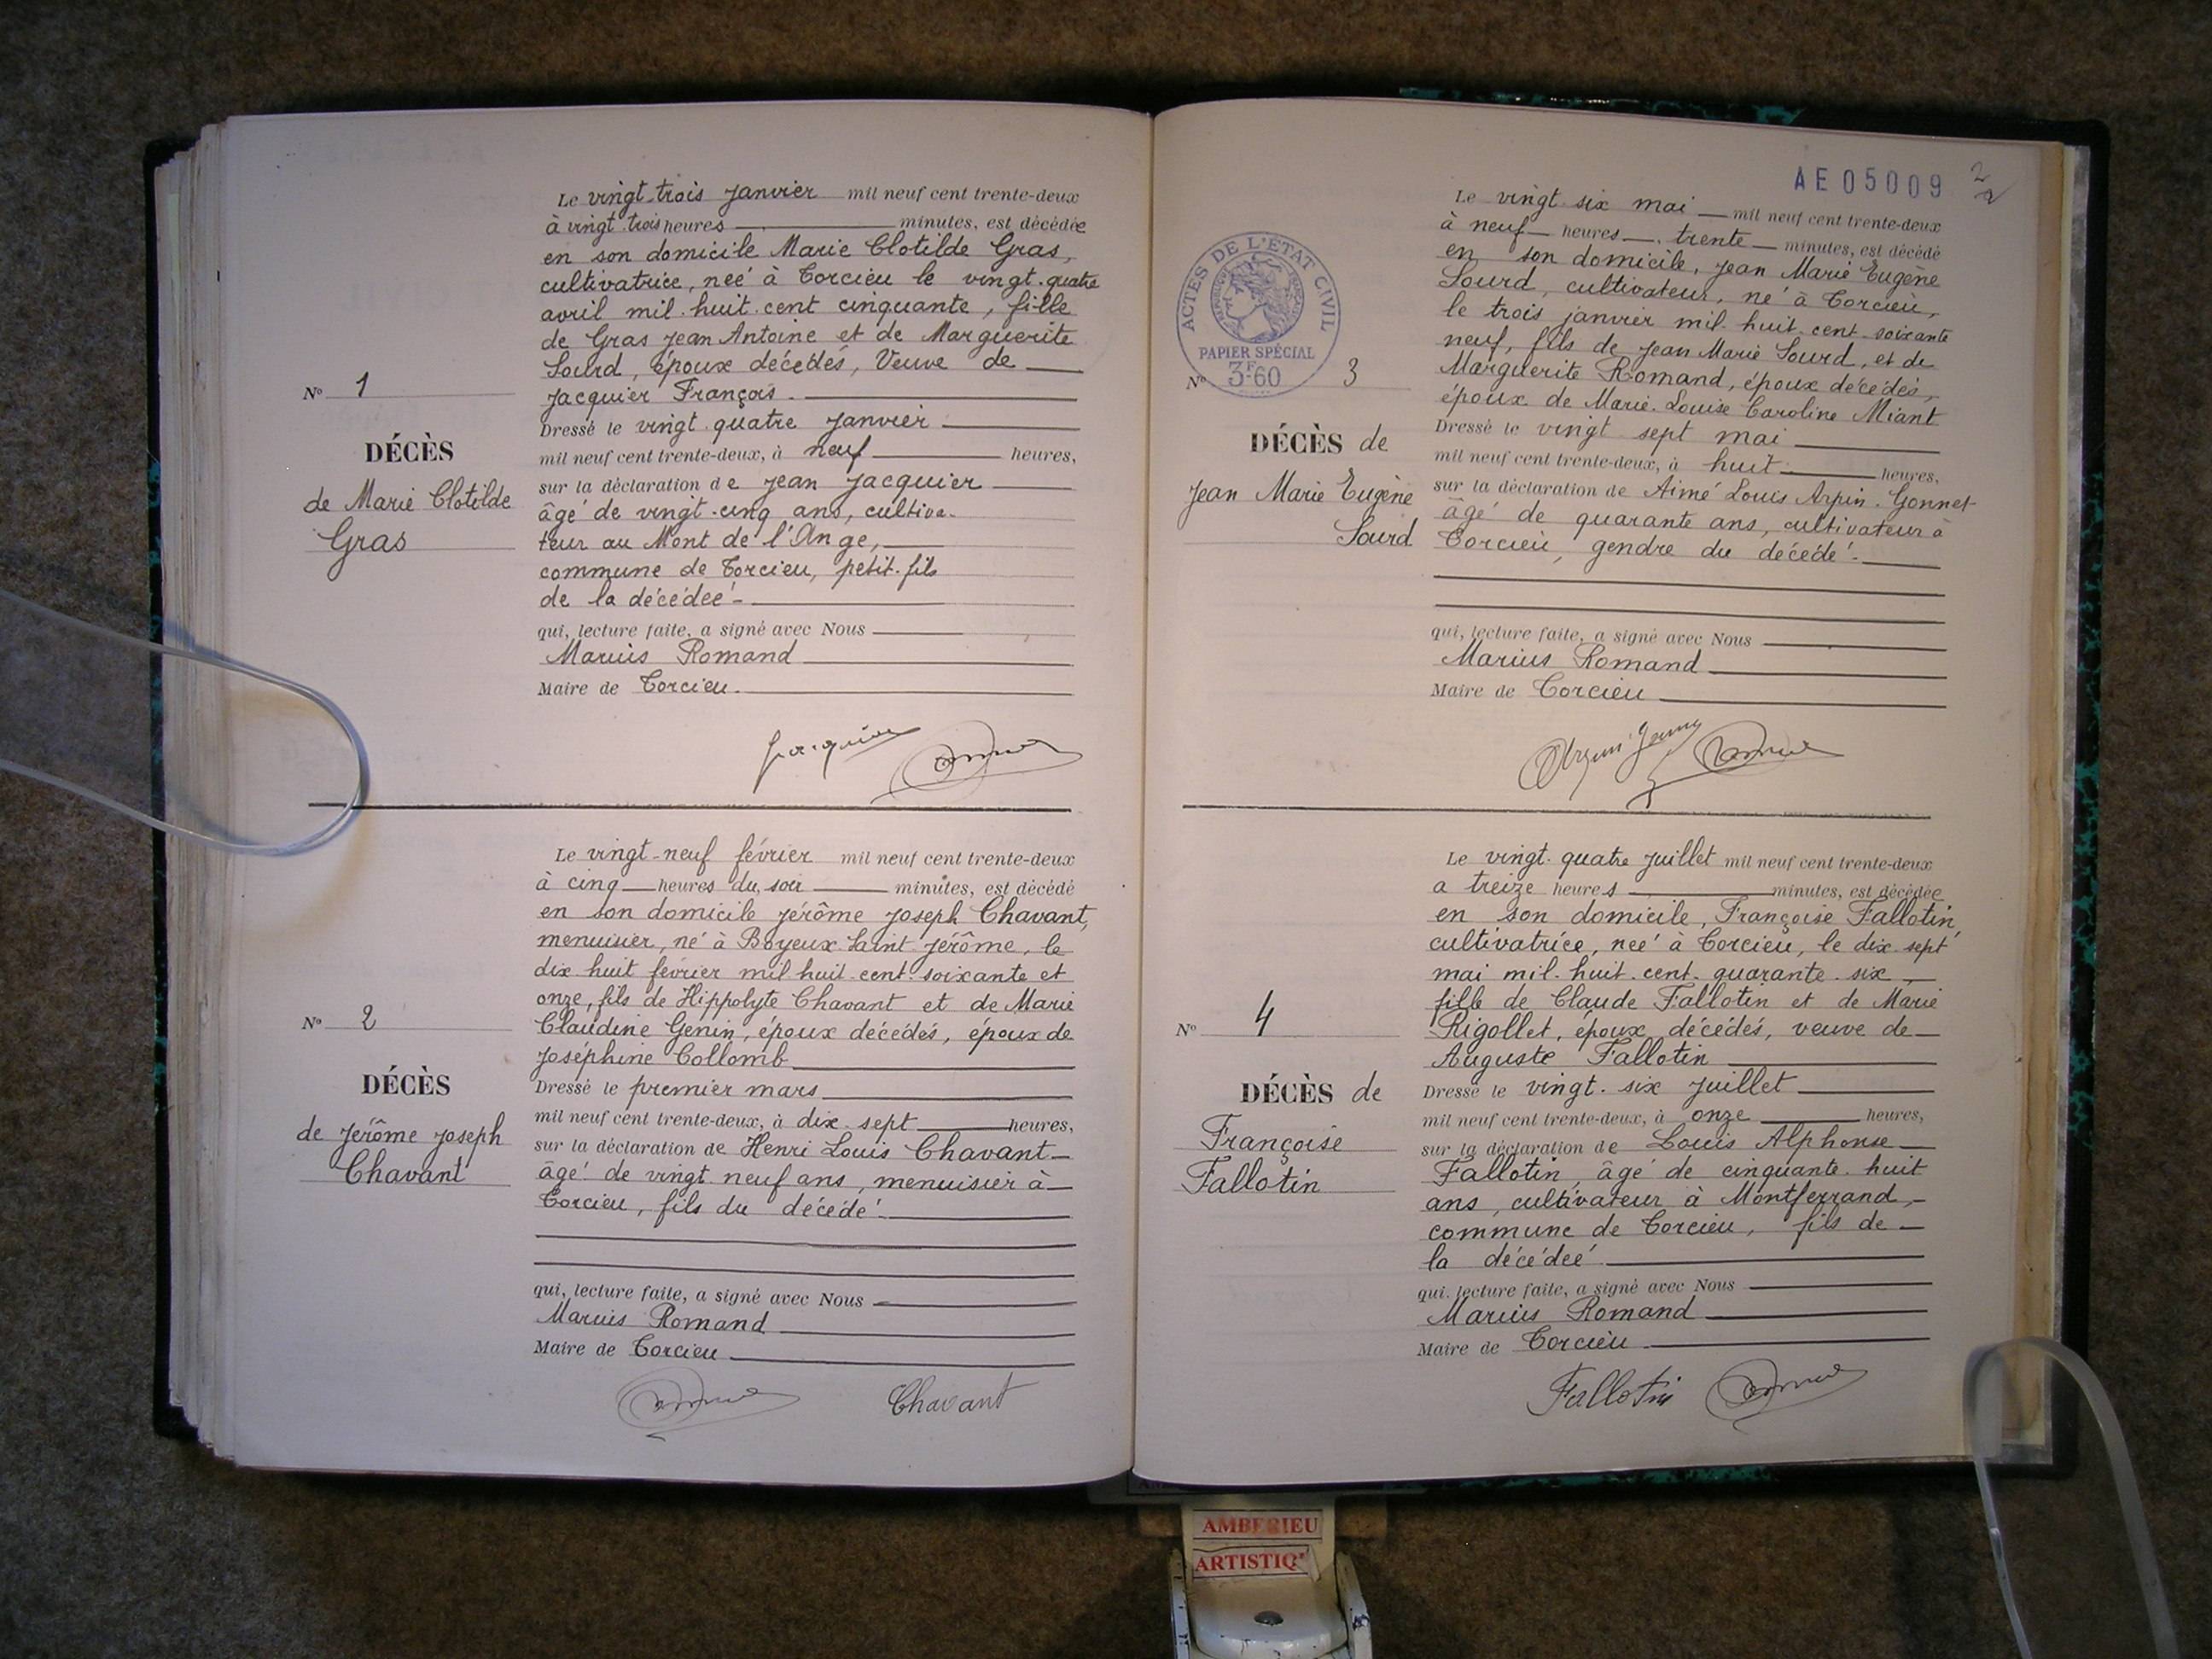 Le vingt-trois janvier mil neuf cent trente-deux
à vingt-trois heures minutes, est décédée
en son domicile Marie Clotilde Gras,
cultivatrice, née à Torcieu le vingt-quatre
avril mil-huit-cent cinquante, fille
de Gras Jean Antoine et de Marguerite
Sourd, époux décédés, Veuve de
Jacquier François.
Dressé le vingt-quatre janvier
mil neuf cent trente-deux, à neuf heures,
sur la déclaration de Jean Jacquier
âgé de vingt-cinq ans, cultiva-
teur au Mont de l'Ange,
commune de Torcieu, petit-fils
de la décédée
qui, lecture faite, a signé avec Nous
Marius Romand
Maire de Torcieu.
Jacquier
N° 1
DÉCÈS
de Marie Clotilde
Gras
Le vingt-neuf février mil neuf cent trente-deux
à cinq heures du soir minutes, est décédé
en son domicile Jérôme Joseph Chavant,
menuisier, né à Boyeux Saint Jérôme, le
dix huit février mil huit-cent-soixante et
onze, fils de Hippolyte Chavant et de Marie
Claudine Genin, époux décédés, époux de
Joséphine Collomb
Dressé le premier mars
mil neuf cent trente-deux, à dix-sept heures,
sur la déclaration de Henri Louis Chavant
âgé de vingt neuf ans, menuisier à
Torcieu, fils du décédé
qui, lecture faite, a signé avec Nous
Marius Romand
Maire de Torcieu
Chavant
N° 2
DÉCÈS
de Jérôme Joseph
Chavant
AE05009
2
2
Le vingt-six mai mil neuf cent trente-deux
à neuf heures trente minutes, est décédé
en son domicile, Jean Marie Eugène
Sourd, cultivateur, né à Torcieu,
le trois janvier mil-huit-cent-soixante
neuf, fils de Jean Marie Sourd, et de
Marguerite Romand, époux décédés,
époux de Marie-Louise Caroline Miant
Dressé le vingt sept mai
mil neuf cent trente-deux, à huit heures,
sur la déclaration de Aimé Louis Arpin-Gonnet
âgé de quarante ans, cultivateur à
Torcieu, gendre du décédé
qui, lecture faite, a signé avec Nous
Marius Romand
Maire de Torcieu
ACTES DE L'ÉTAT CIVIL
RÉPUBLIQUE FRANÇAISE
PAPIER SPÉCIAL
3F60
N° 3
DÉCÈS de
Jean Marie Eugène
Sourd
Le vingt-quatre juillet mil neuf cent trente-deux
à treize heures minutes, est décédée
en son domicile, Françoise Fallotin,
cultivatrice, née à Torcieu, le dix-sept
mai mil-huit-cent-quarante-six,
fille de Claude Fallotin et de Marie
Rigollet, époux décédés, veuve de
Auguste Fallotin
Dressé le vingt-six juillet
mil neuf cent trente-deux, à onze heures,
sur la déclaration de Louis Alphonse
Fallotin, âgé de cinquante-huit
ans, cultivateur à Montferrand,
commune de Torcieu, fils de
la décédée
qui, lecture faite, a signé avec Nous
Marius Romand
Maire de Torcieu
Fallotin
N° 4
DÉCÈS de
Françoise
Fallotin
AMBERIEU
ARTISTIQ